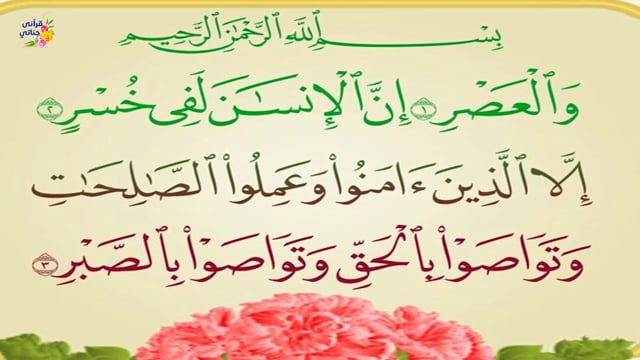 قرآنى
جناتي
بِسْمِ اللَّهِ الرَّحْمَٰنِ الرَّحِيمِ
وَٱلْعَصْرِ ١ إِنَّ ٱلْإِنسَـٰنَ لَفِى خُسْرٍ ٢
إِلَّا ٱلَّذِينَ ءَامَنُوا۟ وَعَمِلُوا۟ ٱلصَّـٰلِحَـٰتِ
وَتَوَاصَوْا۟ بِٱلْحَقِّ وَتَوَاصَوْا۟ بِٱلصَّبْرِ ٣